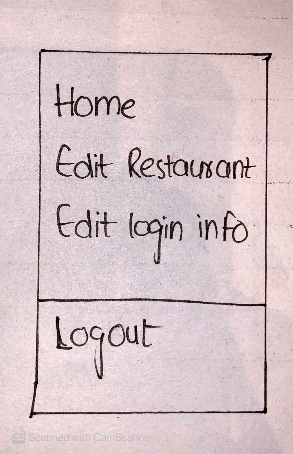 Home
Edit Restaurant
Edit login info
Logout
CS Scanned with CamScanner